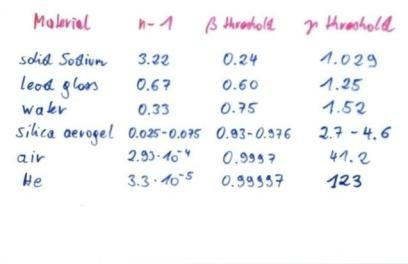 Material n-1 β threshold γ threshold
solid Sodium 3.22 0.24 1.029
lead glass 0.67 0.60 1.25
water 0.33 0.75 1.52
silica aerogel 0.025-0.075 0.93-0.976 2.7-4.6
air 2.93·10⁻⁴ 0.9997 41.2
He 3.3·10⁻⁵ 0.99997 123